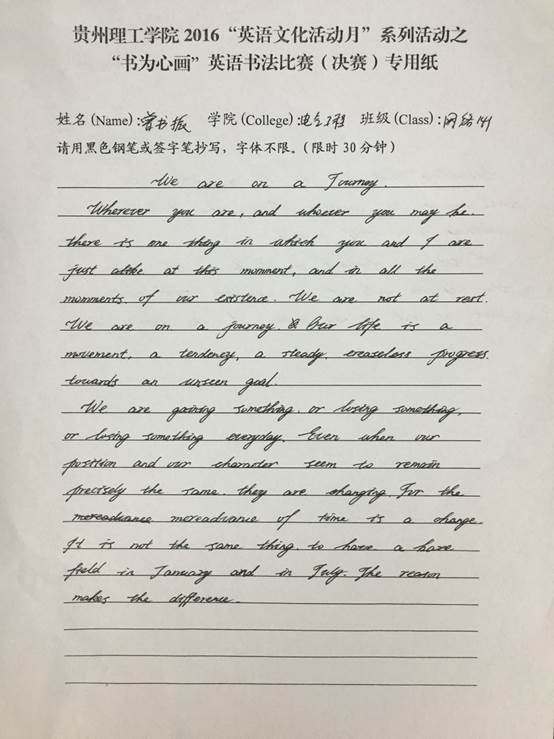 贵州理工学院2016“英语文化活动月”系列活动之
“书为心画”英语书法比赛（决赛）专用纸
姓名(Name):曾书振 学院(College):电气工程 班级(Class):网络141
请用黑色钢笔或签字笔抄写，字体不限。（限时30分钟）
We are on a Journey.
Wherever you are, and whoever you may be.
there is one thing in which you and I are
just alike at this momment, and in all the
momments of our existence. We are not at rest.
We are on a journey. Our life is a
movement, a tendency, a steady, ceaseless progress
towards an unseen goal.
We are gaining something. or losing something,
or losing something everyday. Even when our
position and our character seem to remain
precisely the same. they are changing. For the
moreadvance moreadvance of time is a change.
It is not the same thing. to have a have
field in January and in July. The reason
makes the difference.